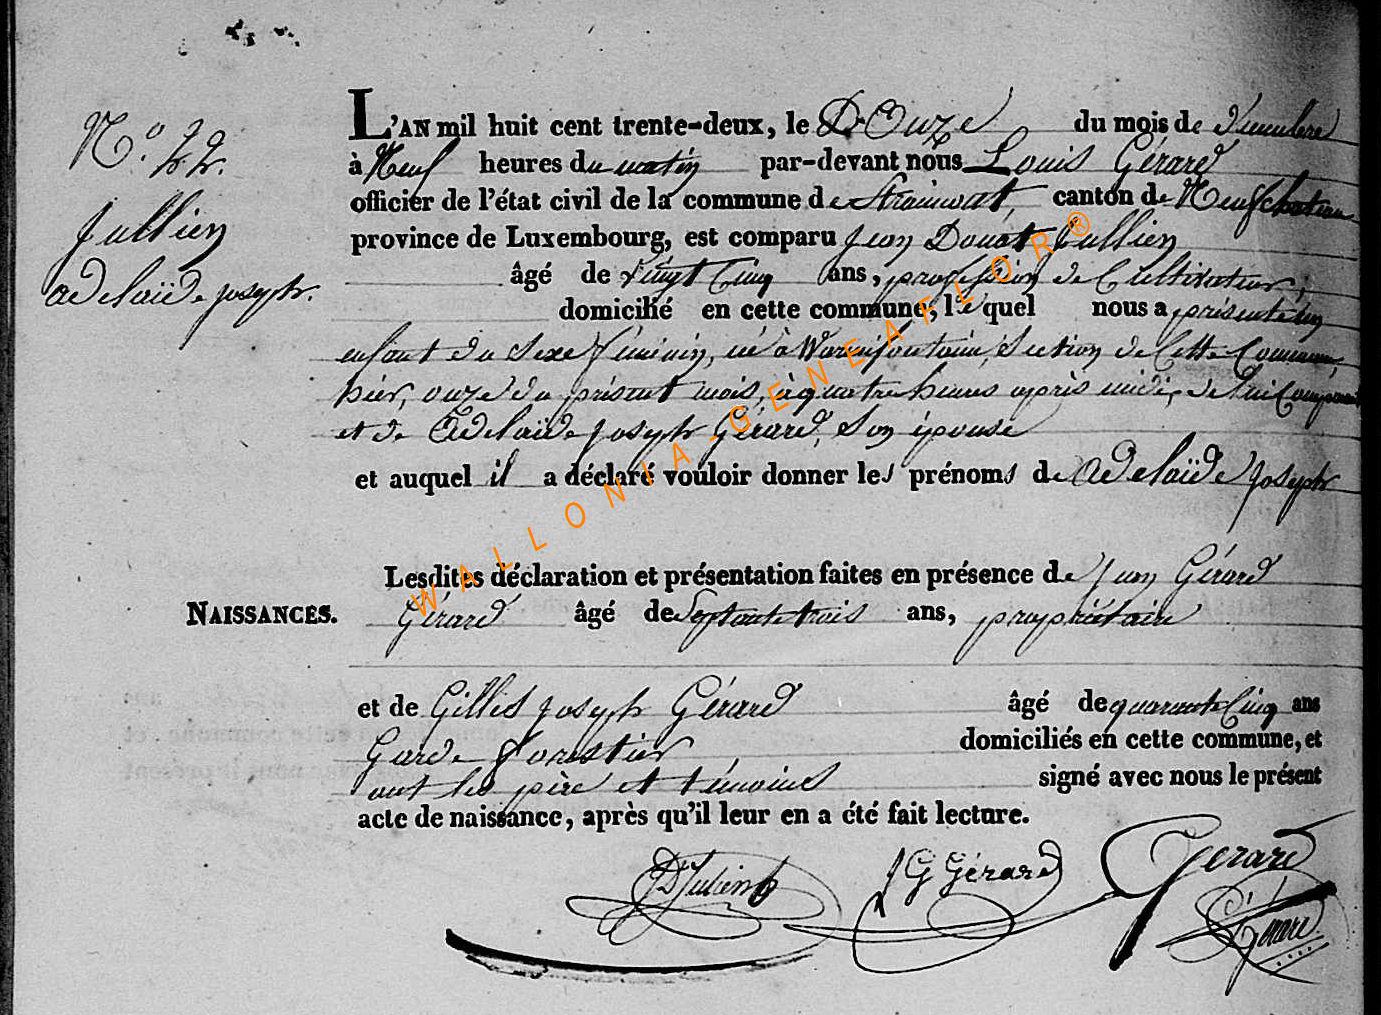 N.° 22.
Jullien
adelaïde joseph.
L'AN mil huit cent trente-deux, le Onze du mois de Décembre
à Neuf heures du matin par-devant nous Louis Gérard
officier de l'état civil de la commune de Straimont, canton de Neufchateau
province de Luxembourg, est comparu Jean Donat Jullien
âgé de Vingt Cinq ans, profession de Cultivateur,
domicilié en cette commune, lequel nous a présenté un
enfant du sexe féminin, né à Warmifontaine, Section de Cette Commune,
hier, onze du présent mois, à quatre heures après midi, de lui Comparant
et de Adelaïde joseph Gérard, Son épouse
et auquel il a déclaré vouloir donner les prénoms de Adelaïde joseph
Lesdites déclaration et présentation faites en présence de Jean Gérard
NAISSANCES.
Gérard âgé de Septante trois ans, propriétaire
et de Gilles joseph Gérard âgé de quarante Cinq ans
Garde forestier domiciliés en cette commune, et
ont les père et témoins signé avec nous le présent
acte de naissance, après qu'il leur en a été fait lecture.
JD Julien JG Gérard Gerard
Gérard
WALLONIA-GENEAFLOR®